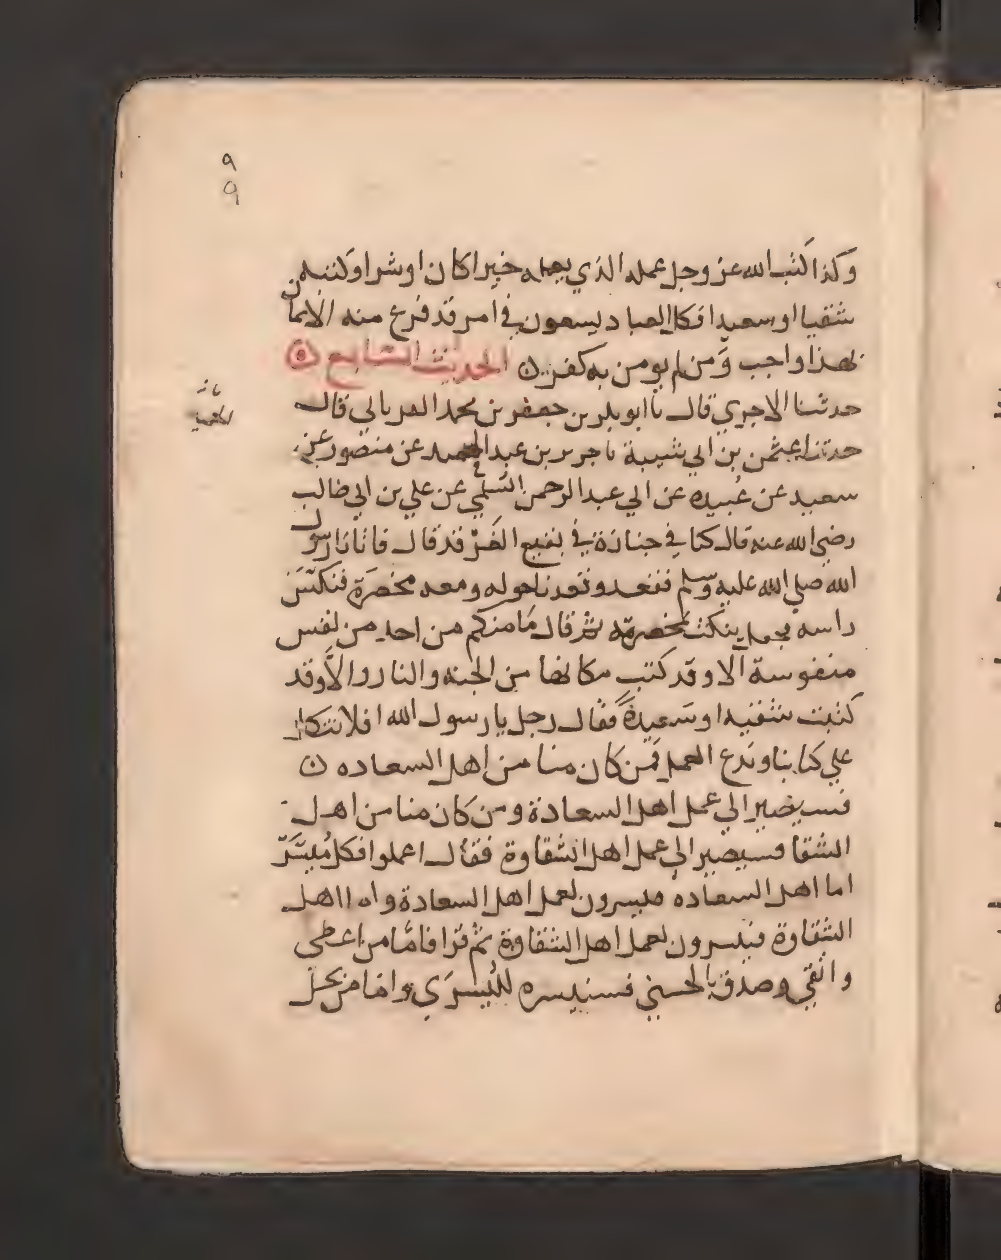 ٩
9
وكذا كتب الله عز وجل عمله الذي يعمله خيرا كان او شرا وكتبه من
شقيا او سعيدا فكل العباد يسعون في امر قد فرغ منه الايما
بهذا واجب ومن لم يومن به كفر ن الحديث السابع
حدثنا الاجري قال نا ابو بكر بن جعفر بن محمد الفريابي قال
حدثنا عثمن بن ابي شيبة نا جرير بن عبد الحميد عن منصور عن
سعيد عن عبيده عن ابي عبد الرحمن السلمي عن علي بن ابي طالب
رضي الله عنه قال كنا في جنازة في بقيع الغرقد قال فاتانا رسول
الله صلى الله عليه وسلم فقعد وقعدنا حوله ومعه مخصرة فنكس
راسه فجعل ينكت بمخصرته ثم قال ما منكم من احد من نفس
منفوسة الا وقد كتب مكانها من الجنه والنار والا وقد
كتبت شقيه او سعيدة فقال رجل يا رسول الله افلا نتكل
علي كتابنا وندع العمل فمن كان منا من اهل السعاده ن
فسيصير الي عمل اهل السعادة ومن كان منا من اهل
الشقا فسيصير الي عمل اهل الشقاوة فقال اعملوا فكل ميسر
اما اهل السعاده فييسرون لعمل اهل السعادة واما اهل
الشقاوة فييسرون لعمل اهل الشقاوة ثم قرا فاما من اعطى
واتقي وصدق بالحسني فسنيسره لليسري واما من بخل